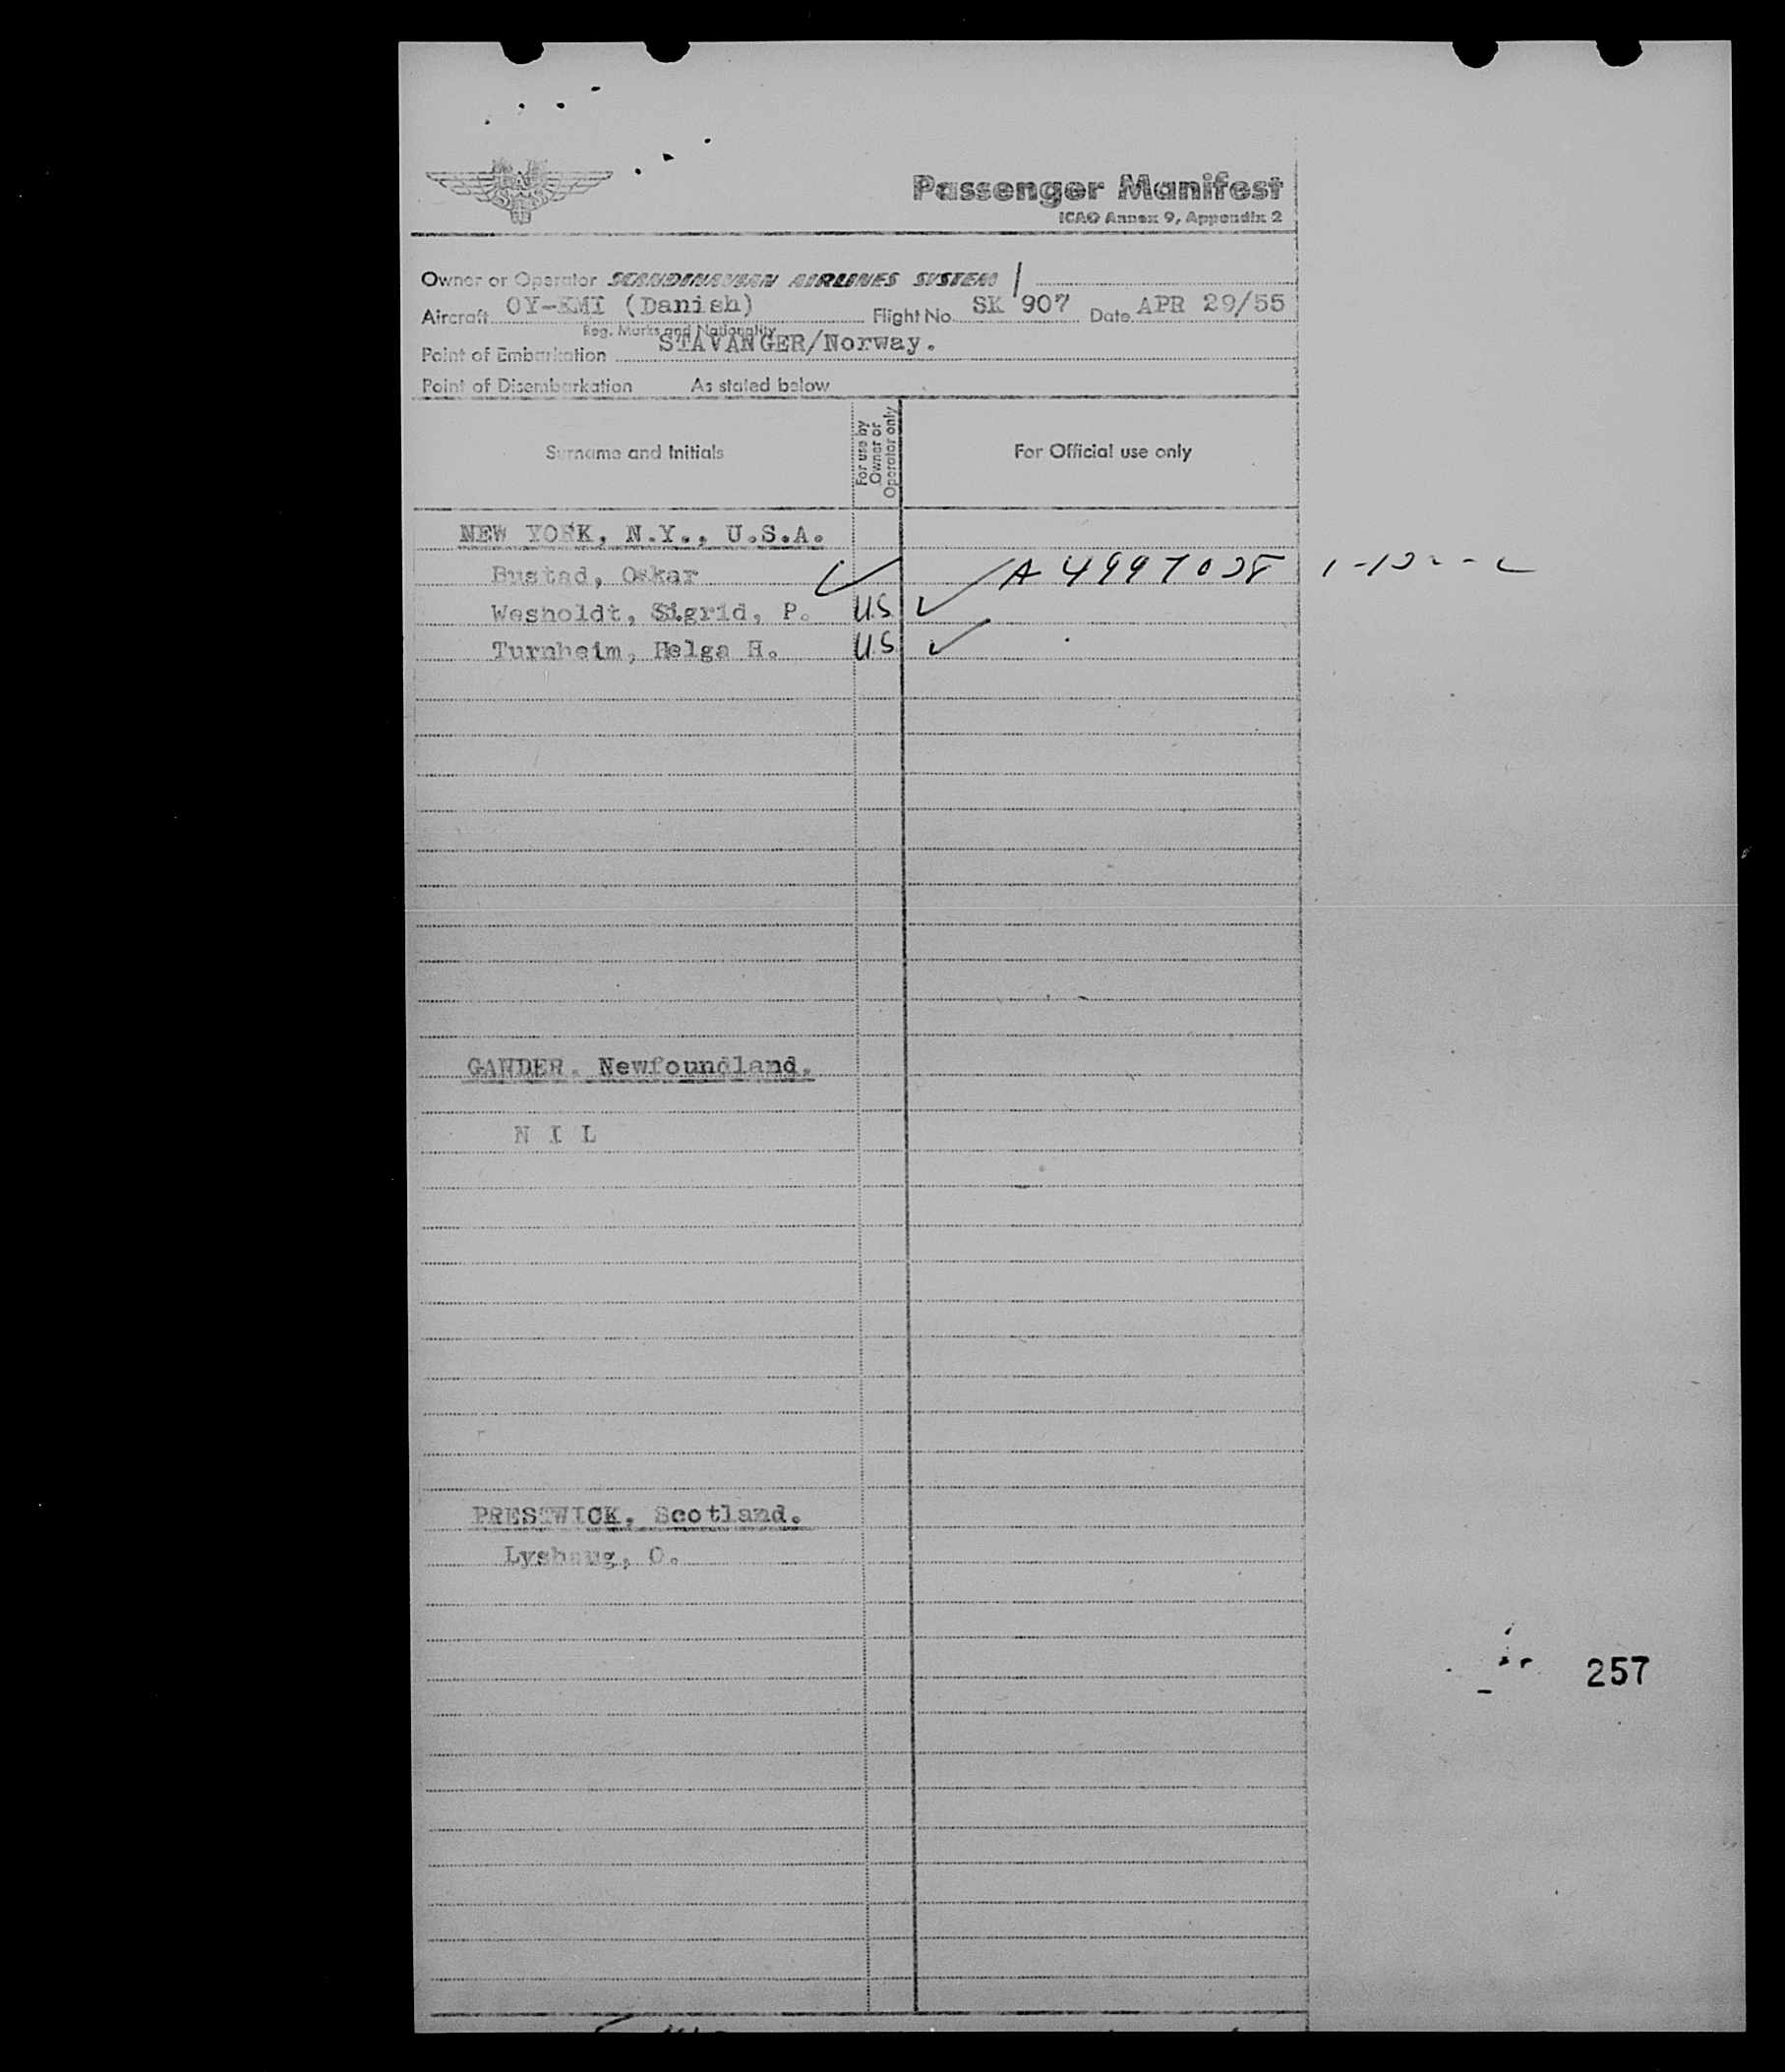 Passenger Manifest
ICAO Annex 9, Appendix 2
Owner or Operator SCANDINAVIAN AIRLINES SYSTEM /
Aircraft OY-KMI (Danish) Flight No. SK 907 Date APR 29/55
Reg. Marks and Nationality
Point of Embarkation STAVANGER/Norway.
Point of Disembarkation As stated below
Surname and Initials For use by Owner or Operator only For Official use only
NEW YORK, N.Y., U.S.A.
Bustad, Oskar A 4997028
Wesholdt, Sigrid, P. U.S
Turnheim, Helga H. U.S
GANDER. Newfoundland.
N I L
PRESTWICK, Scotland.
Lyshaug, O.
257